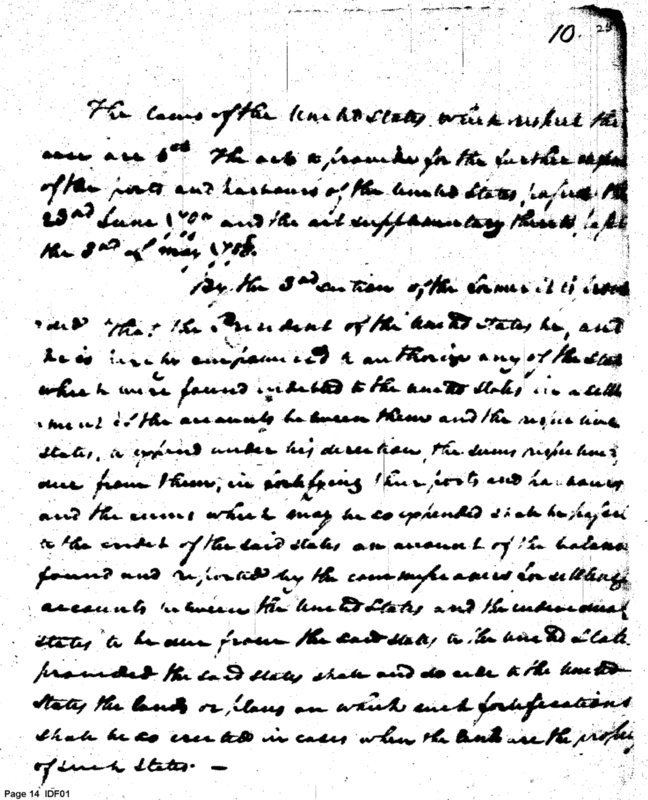 10. 25
The laws of the United States which respect the
case are 1st The act to provide for the further defence
of the ports and harbours of the United States, passed the
23rd June and the act supplementary thereto, passed
the 3rd of may 1798.
By the 3rd section of the former it is provi
ded that the President of the United States be, and
he is hereby empowered to authorize any of the States
which were found indebted to the United States in a settle
ment of the accounts between them and the respective
states, to expend under his direction, the sums respectively
due from them, in fortifying their ports and harbours
and the sums which may be so expended shall be passed
to the credit of the said states on account of the balances
found and reported by the commissioners for settling
accounts between the United States and the individual
states to be due from the said states to the United States
provided the said states shall and do cede to the United
States the lands or places on which such fortifications
shall be so erected in cases when the lands are the property
of such states. —
Page 14 IDF01